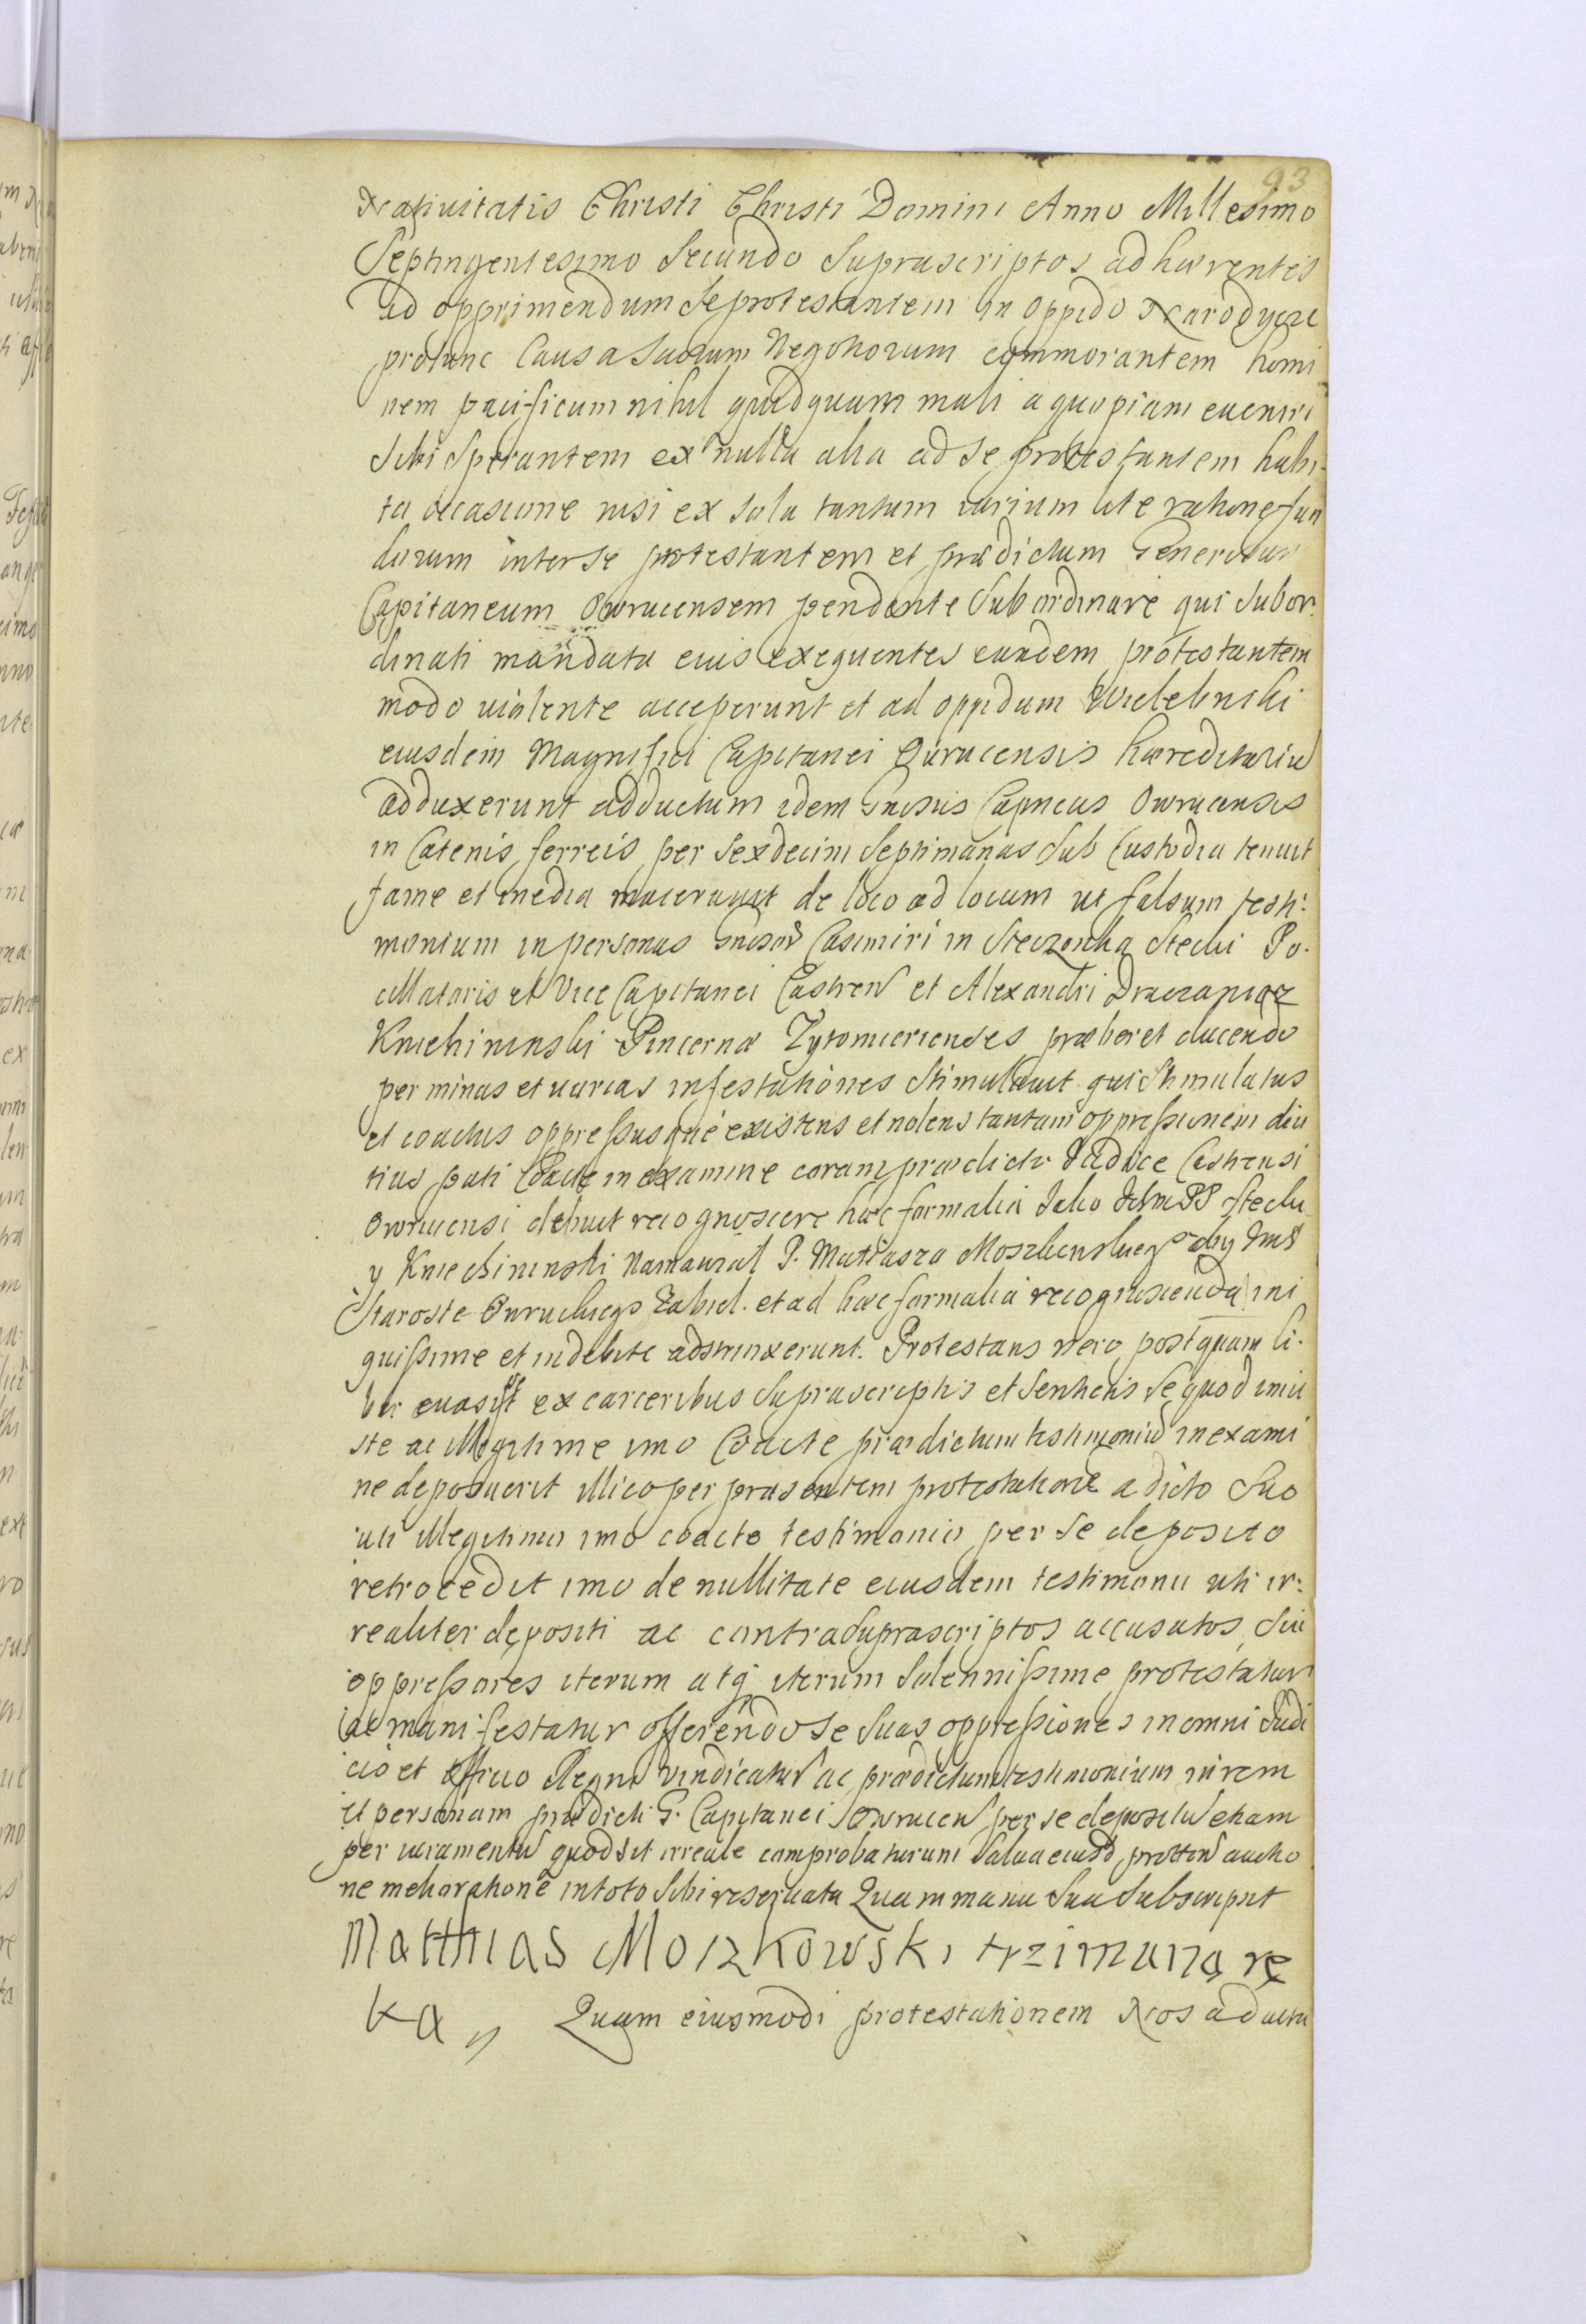 93
Nativitatis Christi Christi Domini Anno Millesimo
Septingentesimo Secundo Suprascriptos adhærentes
ad opprimendum Se protestantem in oppido Narodycze
protunc Causa Suorum Negotiorum commorantem homi
nem pacificum nihil quidquam mali a quopiam eveniri
Sibi Sperantem ex nulla alia ad se protestantem habi-
ta occasione nisi ex sola tantum iurium lite ratione fun
dorum inter se protestantem et prædictum Generosum
Capitaneum Owrucensem pendente Subordinare qui Subor
dinati mandata eius exequentes eundem protestantem
modo violente acceperunt et ad oppidum Wieledniki
eiusdem Magnifici Capitanei Owrucensis hæreditariu
adduxerunt adductum idem Gnosus Capneus Owrucensis
in Catenis ferreis per Sexdecim Septimanas Sub Custodia tenuit
fame et inedia maceravit de loco ad locum ut falsum testi-
monium in personas Gnosor Casimiri in Steczonka Stecki Po-
cillatoris et Vice Capitanei Castren et Alexandri
Kniehininski Pincernæ Zytomiriensis præberet ducendo
per minas et varias infestationes Stimulavit qui Stimulatus
et coactus oppressusque existens et nolens tantam oppressionem diu
tius pati Coacte in examine coram prædicto Iudice Castrensi
Owrucensi debuit recognoscere hæc formalia Jako Stecki
y Kniehininski Namawial P. Matiasza Moszkowskiego aby
Staroste Owruckiego Zabiel. et ad hæc formalia recognoscenda ini
quissime et indebite adstrinxerunt. Protestans vero postquam li-
ber evasit ex carceribus Suprascriptis et Sentiens Se quod iniu
ste ac illegitime imo Coacte prædictum testimoniu in exami
ne deposuerit illico per præsentem protestatione a dicto Suo
uti illegitimo imo coacto testimonio per Se deposito
retrocedit imo de nullitate eiusdem testimonii uti ir-
realiter depositi ac contra Suprascriptos accusatos Sui
oppressores iterum atq iterum Solennissime protestatur
ac manifestatur offerendo Se Suas oppressiones in omni Iudi
cio et officio Regni vindicatur ac prædictum testimonium in rem
et personam prædicti G. Capitanei Owrucen per se depositu etiam
per iuramentu quod sit irreale comprobaturum Salva eiusd prottnis auctio
ne melioratione in toto Sibi reservata Quam manu Sua Subscripsit
Matthias Moszkowski trzimana rę
ka, Quam eiusmodi protestationem Nos ad acta